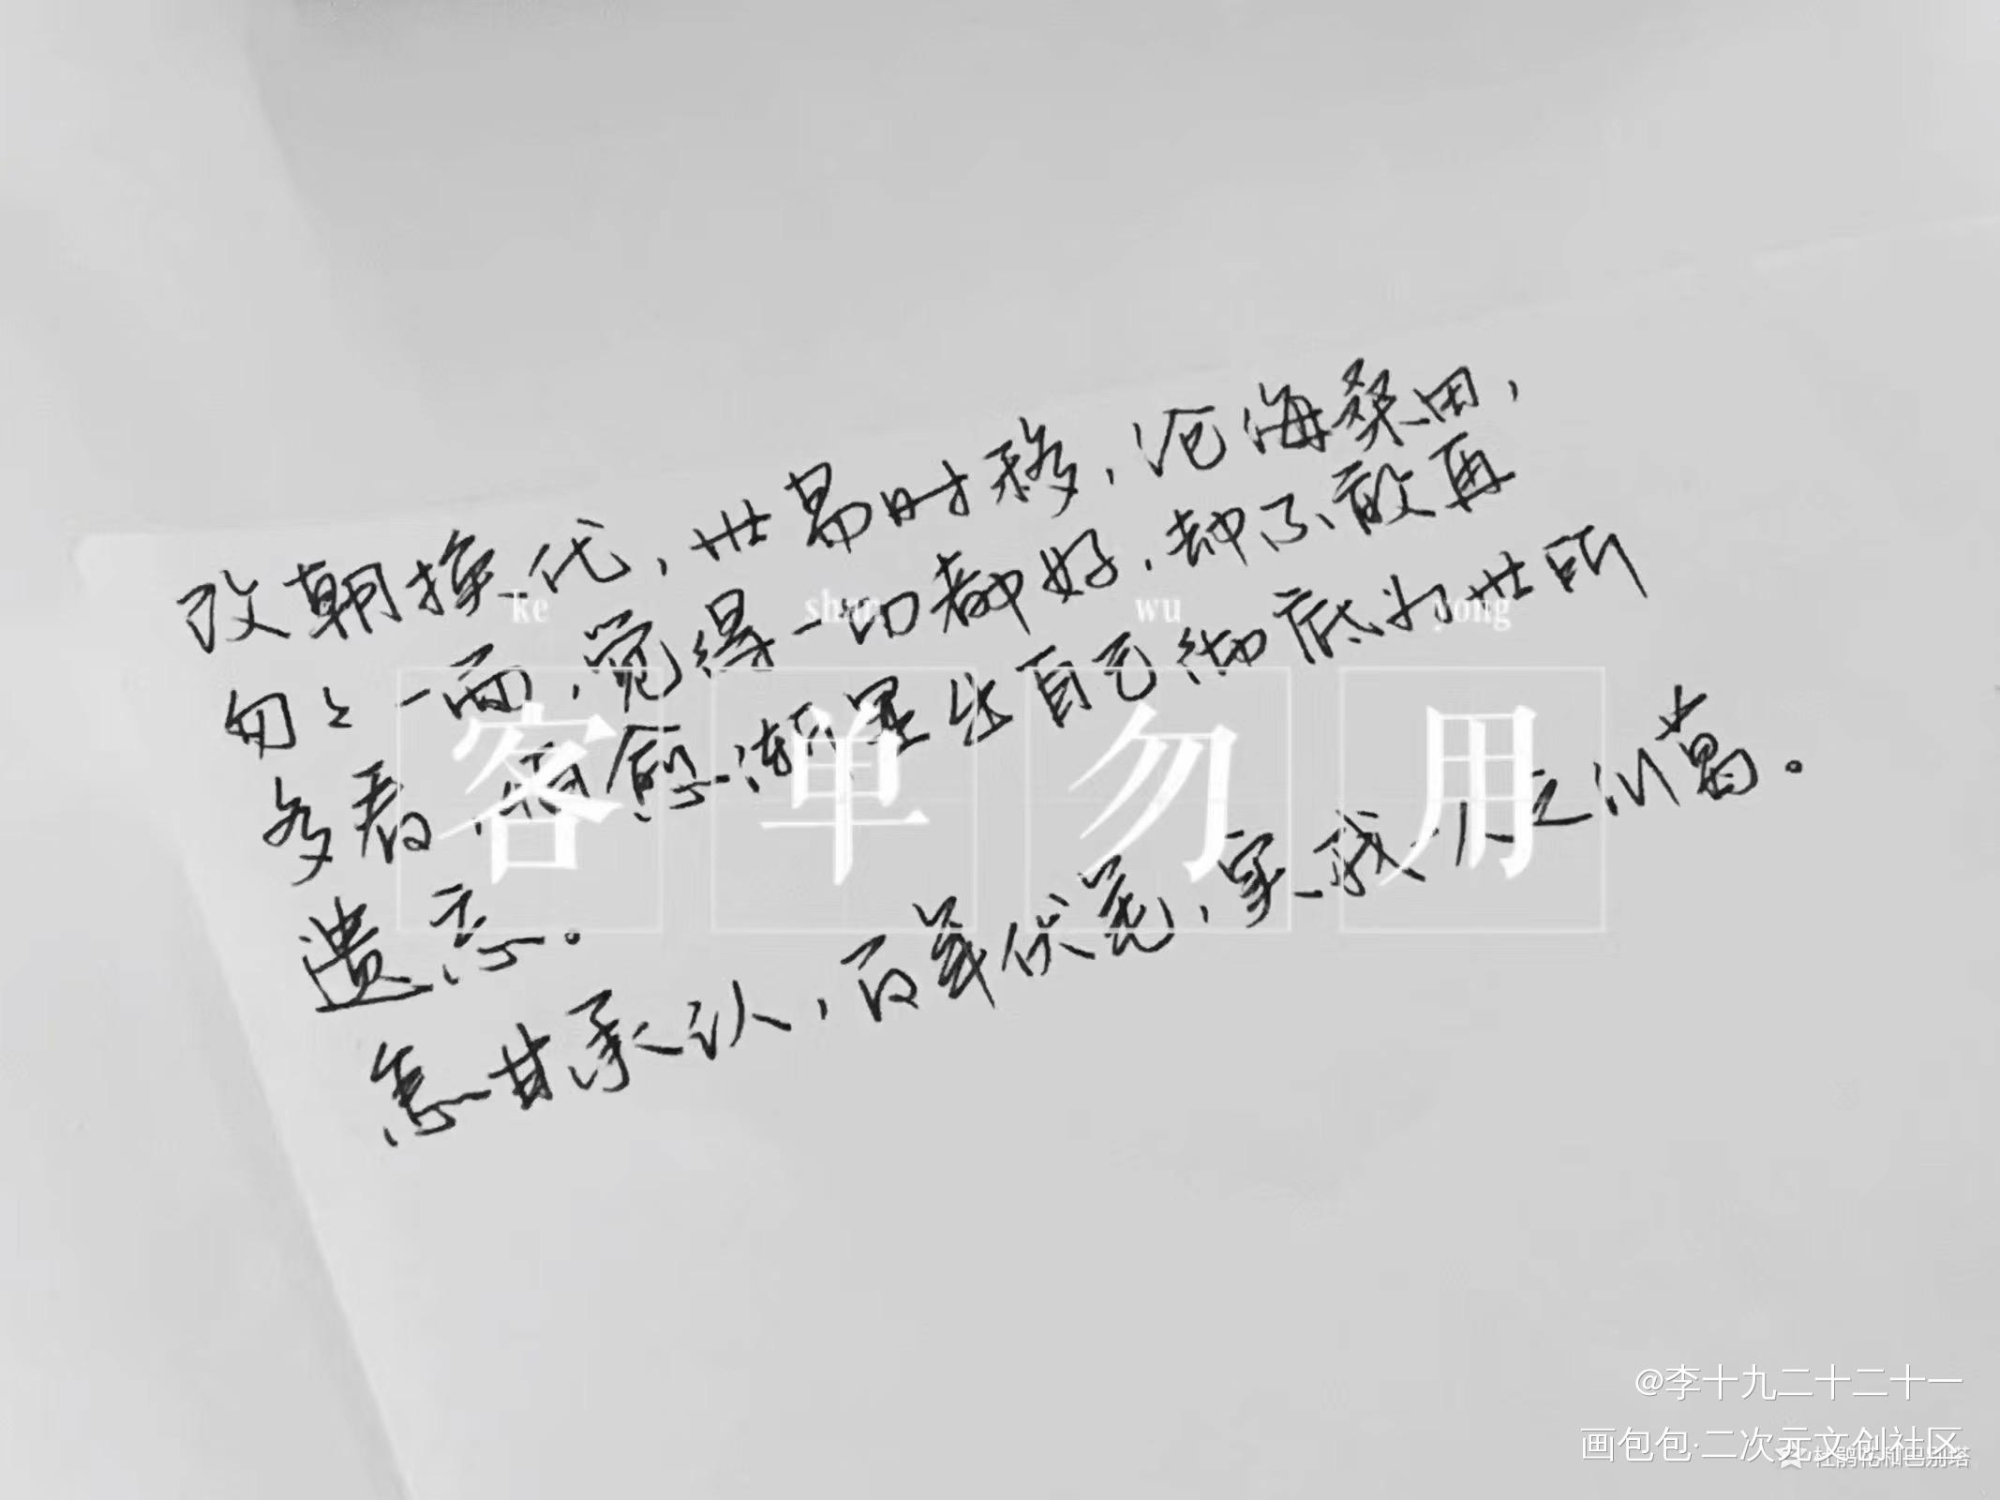 改朝换代，世易时移，沧海桑田，
匆匆一面，觉得一切都好，却不敢再
多看，愈渐显出自己彻底为世所
遗忘。
怎甘承认，百年伏羌，实我人之川蒿。
ke shan wu yong
客单勿用
@李十九二十二十一
画包包·二次元文创社区
杜鹃花和巴别塔